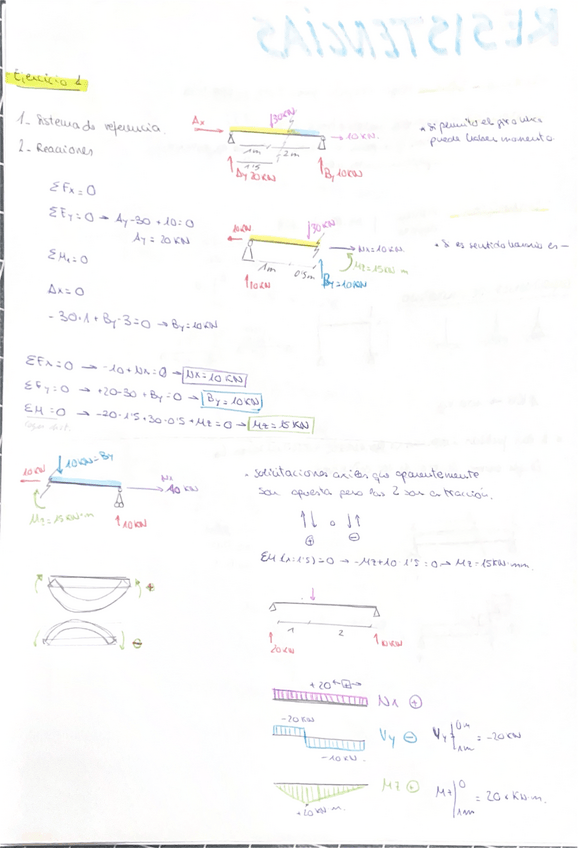 RESISTENCIAS
Ejercicio 1
1- Sistema de referencia.
2- Reacciones
Ax
30KN
10KN.
1m
2m
1'5
Ay 20KN
By 10KN
- Si permite el giro
puede haber momento
ΣFx=0
ΣFy=0 → Ay-30+10=0
Ay=20KN
ΣMz=0
Ax=0
-30·1+By·3=0 → By=10KN
10KN
30KN
Nx=10KN.
Mz=15KN·m
1m
0'5m
By=10KN
10KN
ΣFx=0 → -10+Nx=0 → Nx=10KN
ΣFy=0 → +20-30+By=0 → By=10KN
ΣM=0 → -20·1'5+30·0'5+Mz=0 → Mz=15KN
10KN
10KN=By
Nx
10KN
Mz=15KN·m
10KN
- Solicitaciones axiles que aparentemente
son opuesta pero las 2 son a tracción.
↑↓ o ↓↑
+ -
ΣM(x=1'5)=0 → -Mz+10·1'5=0 → Mz=15KN·mm.
+
-
1
2
20KN
10KN
+20
Nx +
-20KN
Vy -
-10KN.
Vy
0m
1m
=-20KN
Mz +
+20KN·m.
Mz
0
1m
=20xKN·m.